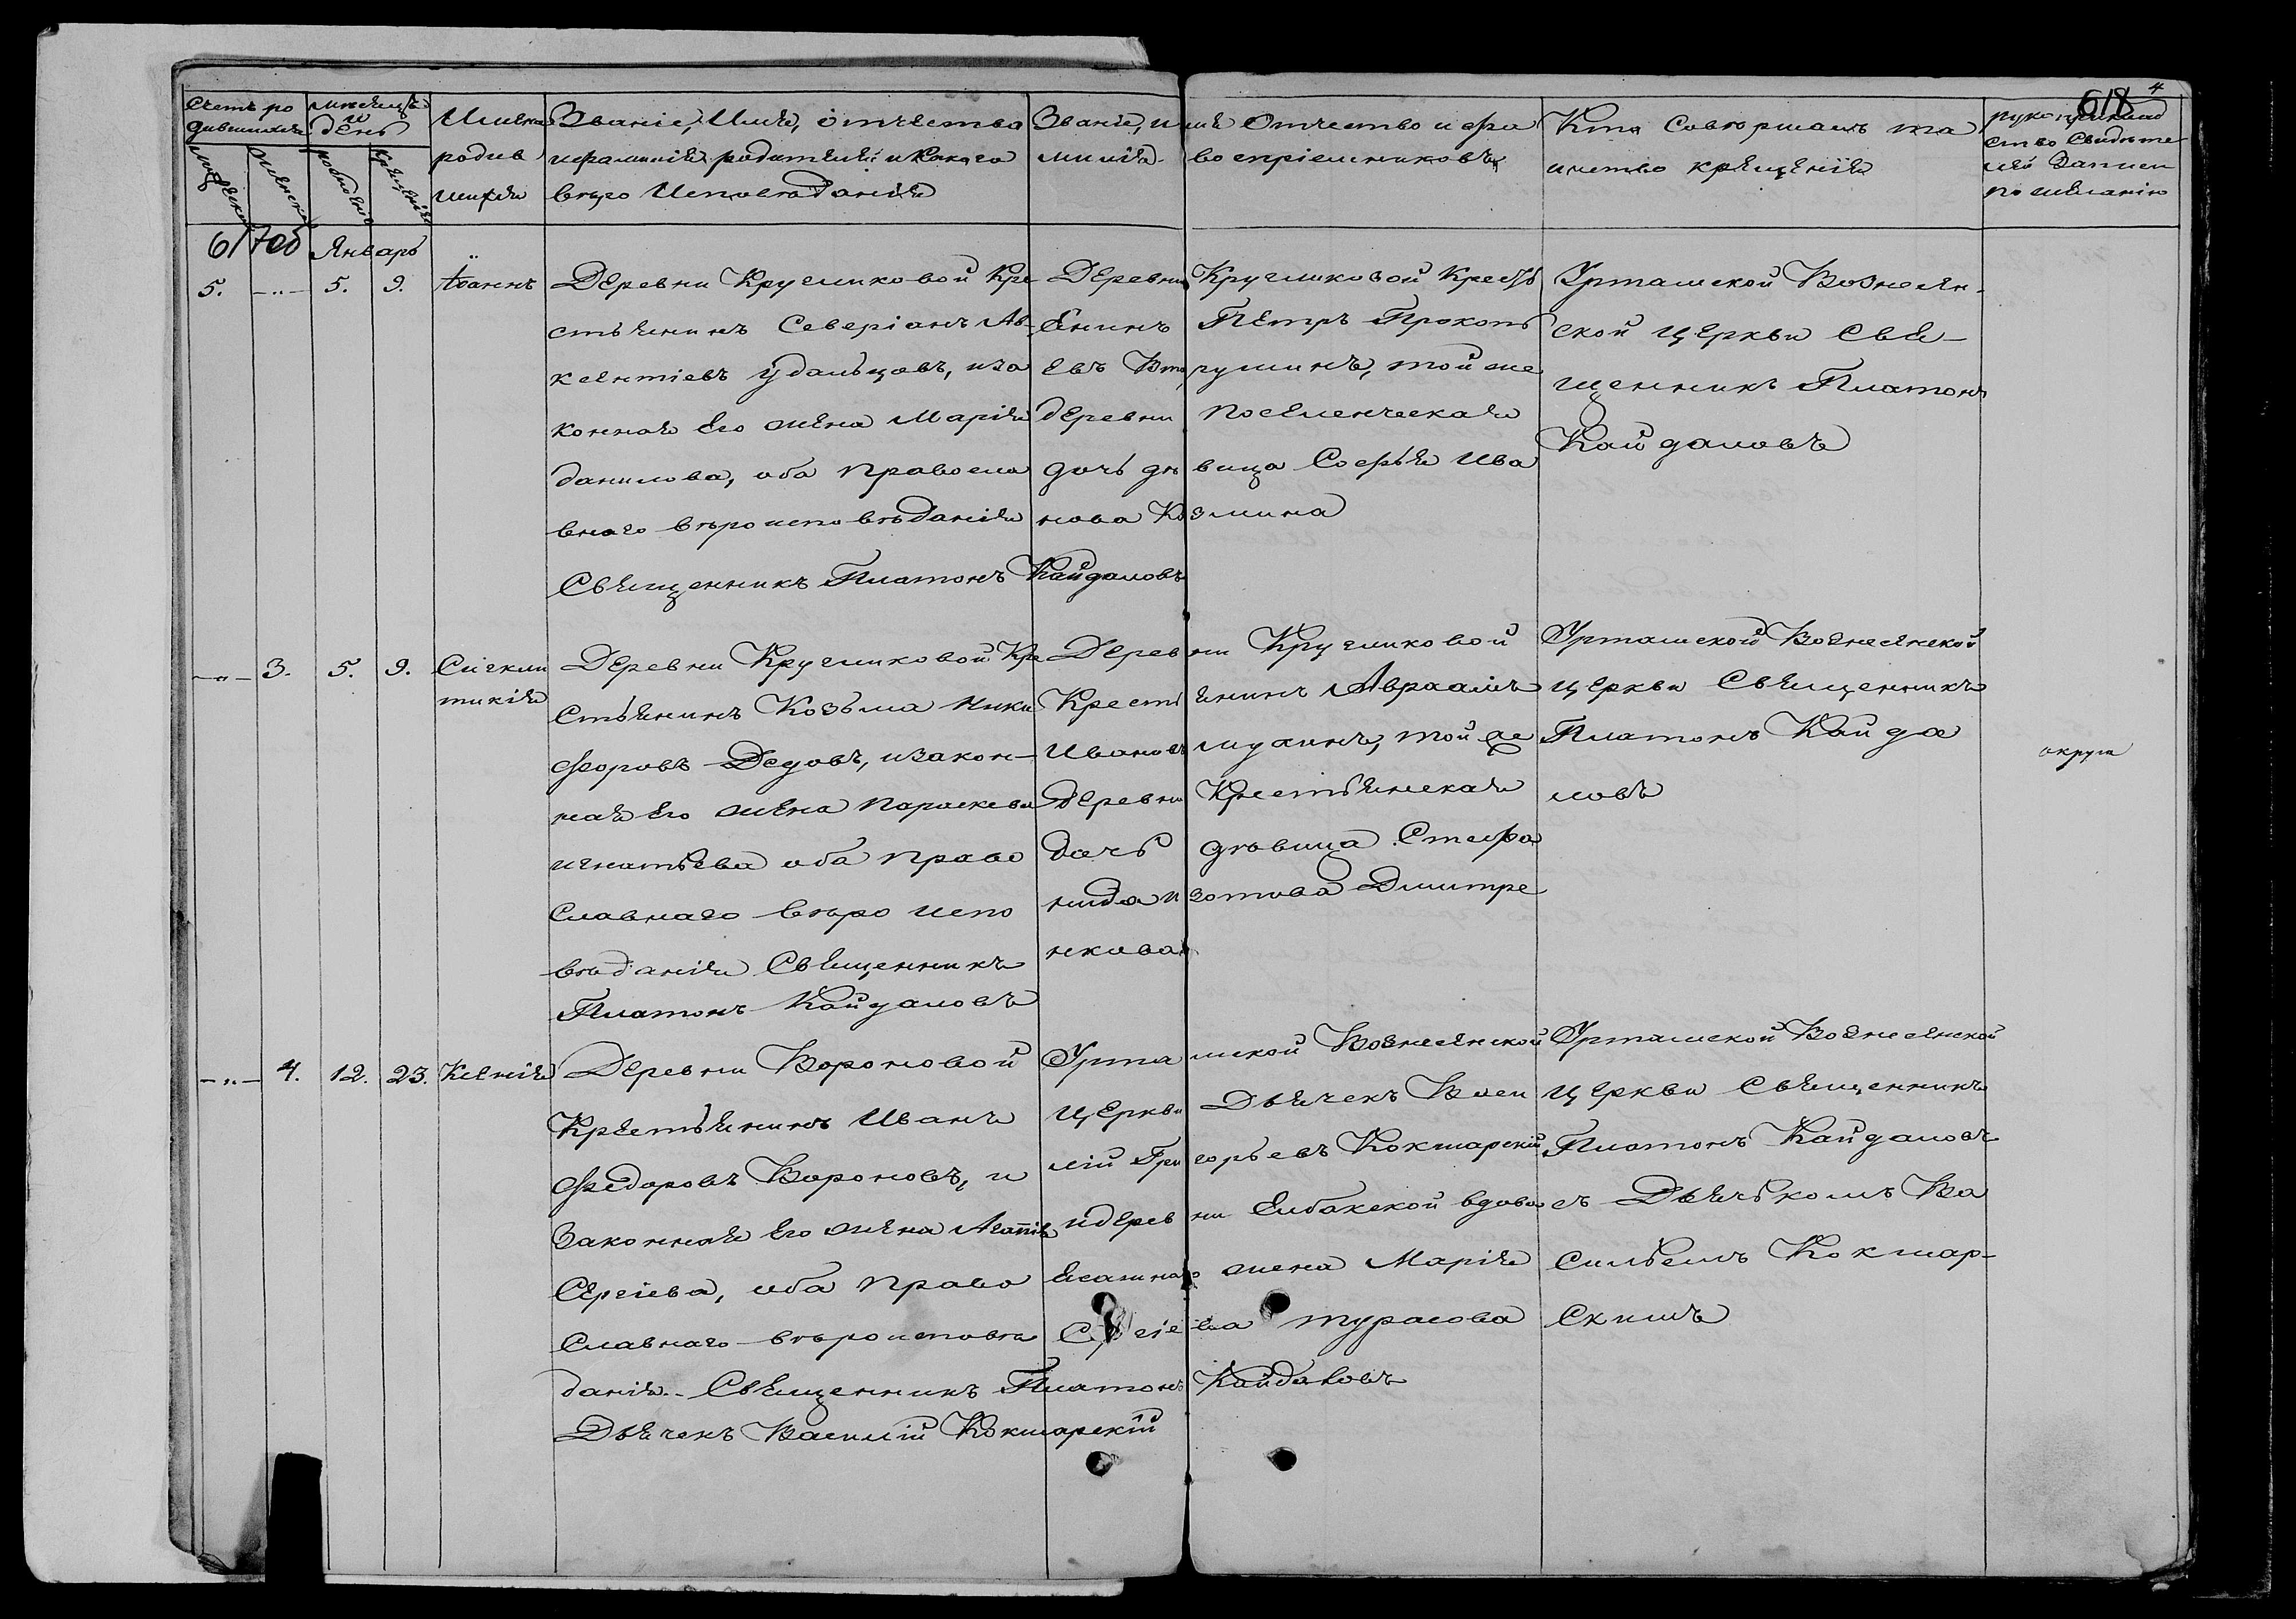 618
4
Счетъ ро
дившихся
мужеска
женска
мѣсяцъ
и
день
рожденія
крещенія
Имена
родив
шихся
Званіе, Имя, отчество
ифамилія родителей и Какого
вѣро Исповѣданія
Званіе, имя Отчество и фа
милія воспріемниковъ
Кто Совершалъ та
инство крещенія
рукоприклад
ство Свидѣте
лей Записи
по желанію
Январь
5. —"— 5. 9.
Іоаннъ
Деревни Кругликовой Кре
стьянинъ Северіанъ Ав-
ксентіевъ Удальцовъ, иза
конная Его жена Марія
данилова, оба Правосла
внаго вѣроисповѣданія
Священникъ Платонъ Кайдаловъ
Деревни Кругликовой Кресть
янинъ Петръ Прокопь
евъ Втарушинъ, той же
деревни Поселенческая
дочь дѣвица Софья Ива
нова Козмина
Урташской Вознесен-
ской церкви Свя-
щенникъ Платонъ
Кайдаловъ
—"— 3. 5. 9.
Сигкли
тикія
Деревни Кругликовой Кре
Стьянинъ Козьма Ники
форовъ Дедовъ, изакон-
ная Его жена Параскева
игнатьева оба право
Славнаго вѣро испо
вѣданія Священникъ
Платонъ Кайдаловъ
Деревни Кругликовой
Крестьянинъ Авраамъ
Ивановъ мухинъ, той же
деревни Крестьянская
дочь дѣвица Стефа
нида изотова Дмитре
нкова
Урташской Вознесенской
церкви Священникъ
Платонъ Кайда
ловъ
округи
—"— 4. 12. 23.
Ксенія
Деревни Вороновой
Крестьянинъ Иванъ
Федоровъ Вороновъ, и
Законная Его жена Агапія
Сергіева, оба Право
Славнаго вѣроисповѣ
данія. Священникъ Платонъ Кайдаловъ
Дьячекъ Василій Кокшарскій
Урташской Вознесенской
церкви Дьячекъ Васи
лій Григорьевъ Кокшарскій
идеревни Елбакской вдова
жена Марія
Сергіева турасова
Урташской Вознесенской
церкви Священникъ
Платонъ Кайдаловъ
съ Дьячькомъ Ва
сильемъ Кокшар-
Скимъ